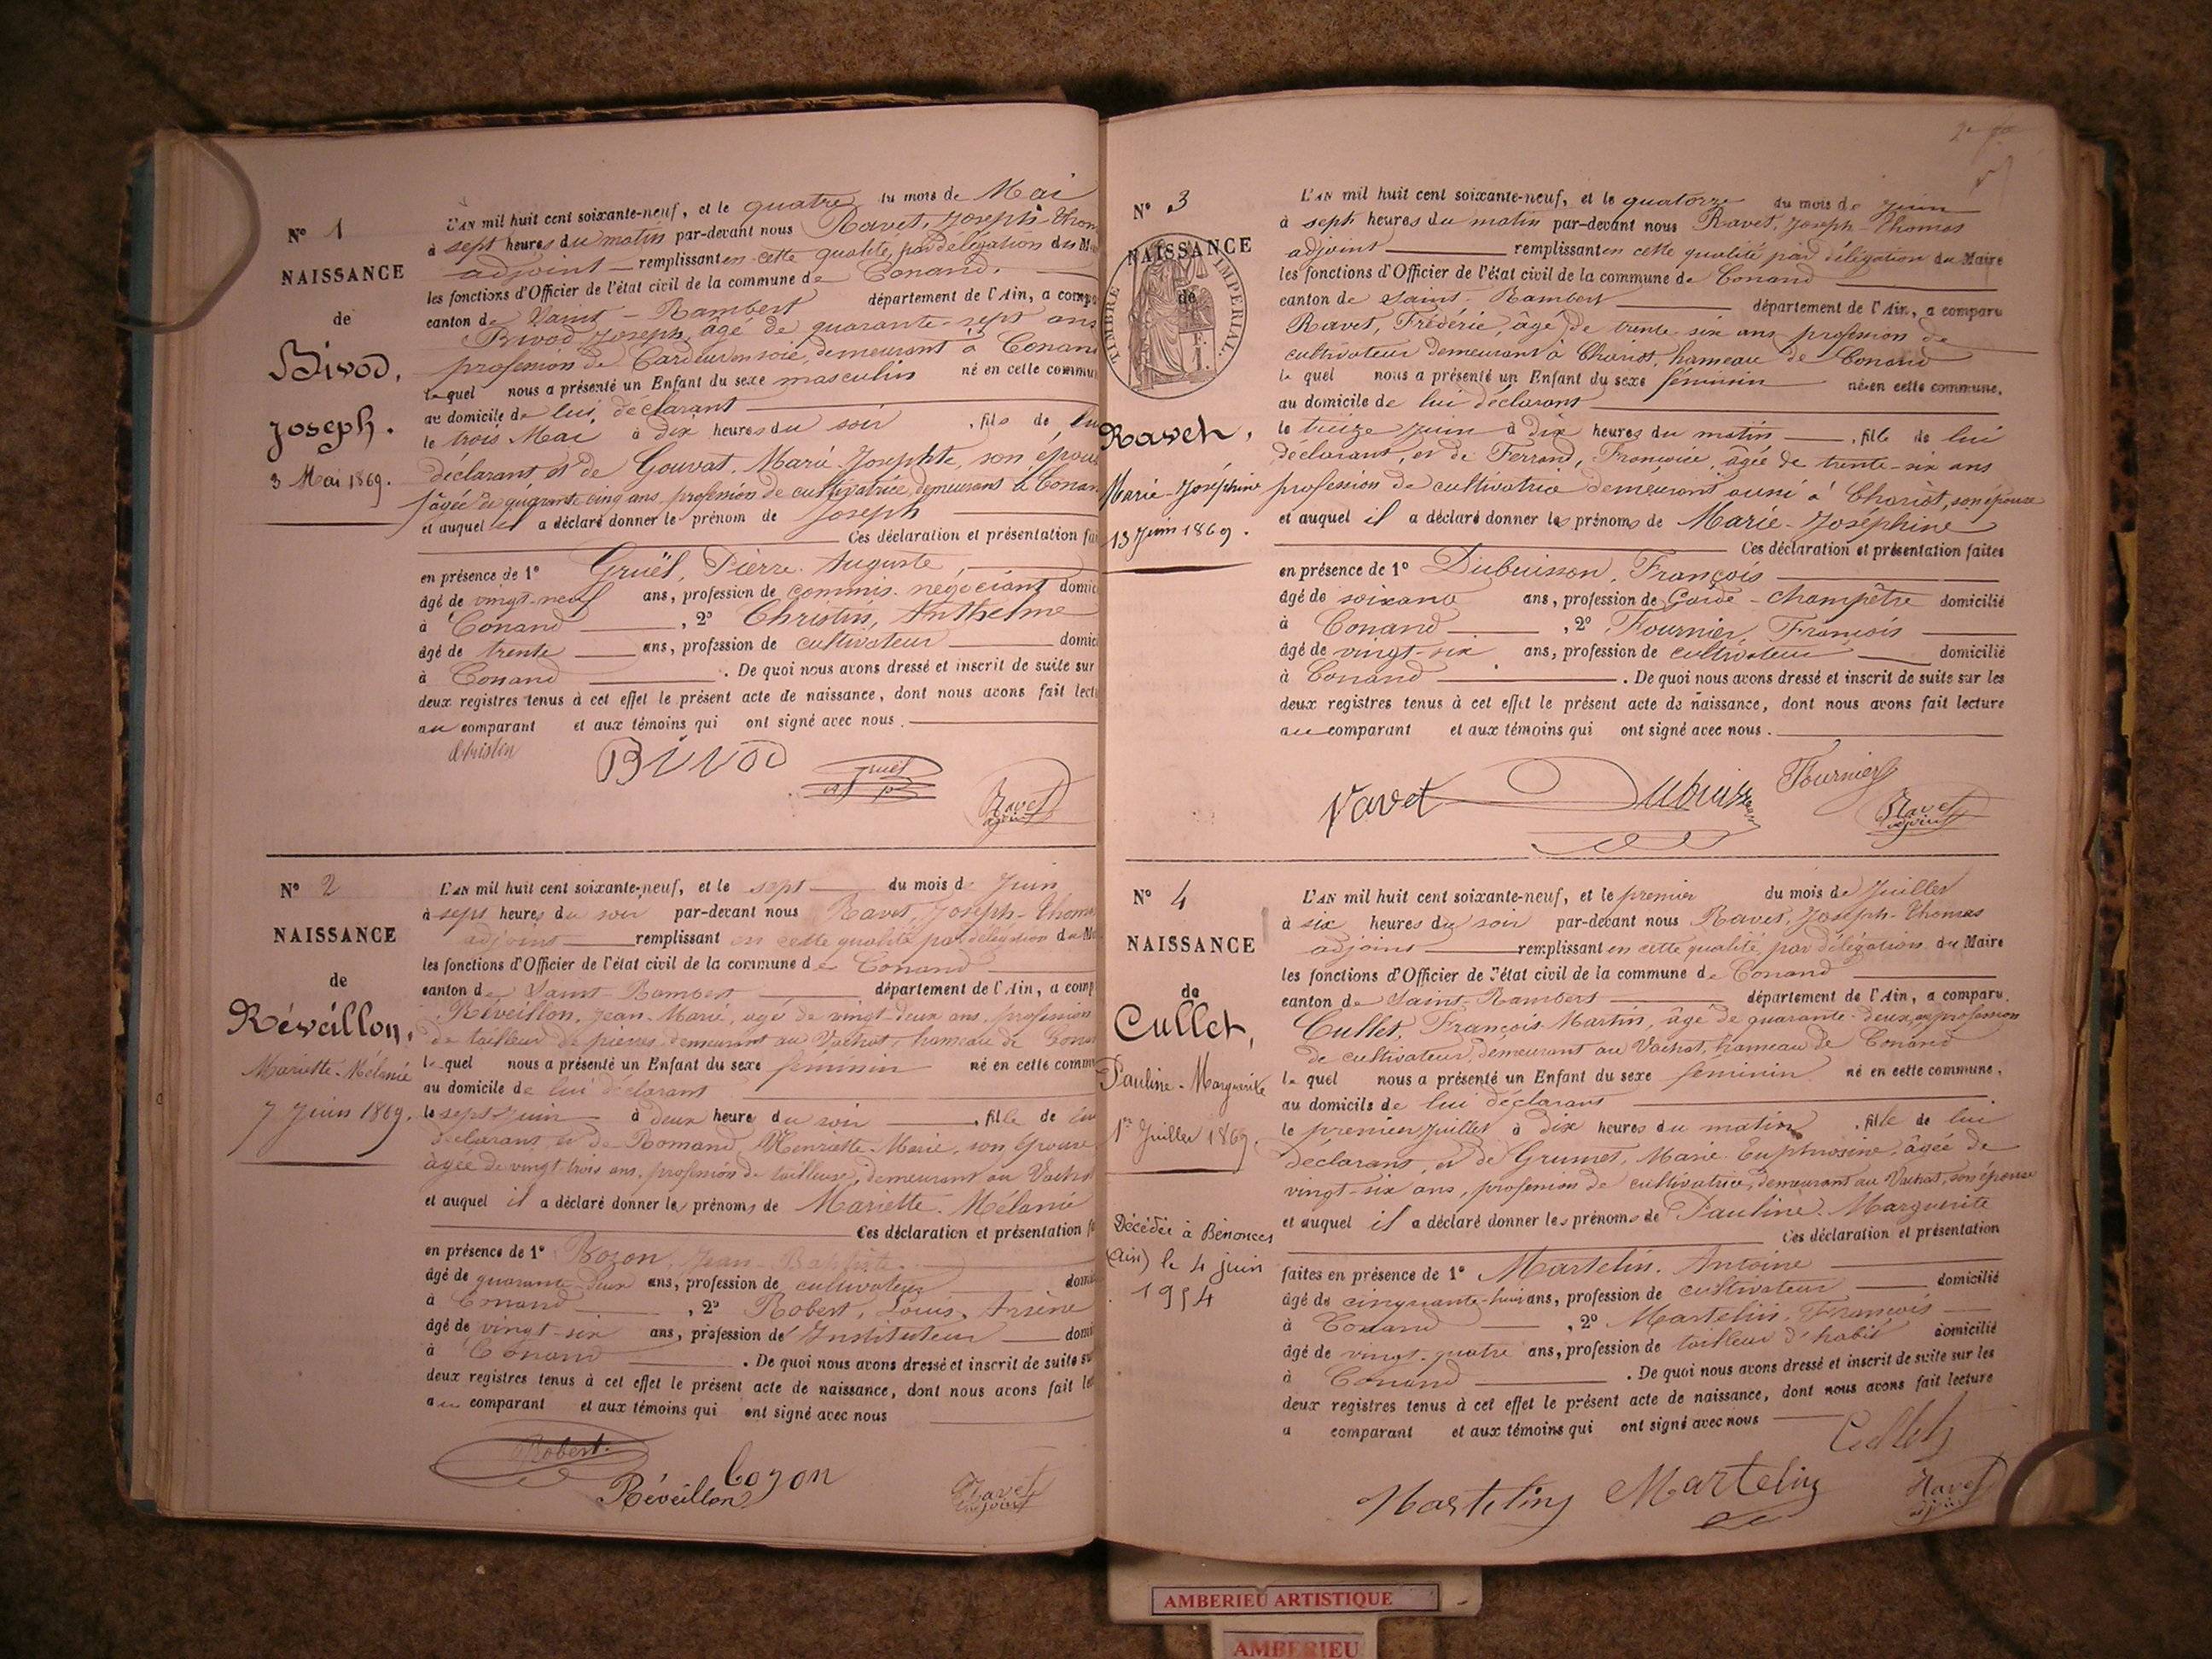 N° 1
NAISSANCE
de
Bivod,
Joseph.
3 Mai 1869.
L'AN mil huit cent soixante-neuf, et le quatre du mois de Mai
à sept heures du matin par-devant nous Ravet, Joseph-Thom
adjoint remplissant en cette qualité, par délégation du Ma
les fonctions d'Officier de l'état civil de la commune de Conand.
canton de Saint-Rambert département de l'Ain, a compa
Bivod Joseph, âgé de quarante-sept ans
profession de Cardeur en soie, demeurant à Conan
lequel nous a présenté un Enfant du sexe masculin né en cette commun
au domicile de lui déclarant
le trois Mai à dix heures du soir, fils de lui
déclarant, et de Gouvat, Marie-Josephte, son épous
âgée de quarante cinq ans, profession de cultivatrice, demeurant à Conan
et auquel il a déclaré donner le prénom de Joseph
Ces déclaration et présentation fai
en présence de 1° Gruël, Pierre Auguste,
âgé de vingt-neuf ans, profession de commis négociant domic
à Conand, 2° Christin, Anthelme
âgé de trente ans, profession de cultivateur domic
à Conand. De quoi nous avons dressé et inscrit de suite sur
deux registres tenus à cet effet le présent acte de naissance, dont nous avons fait lect
au comparant et aux témoins qui ont signé avec nous.
christin BIVOD gruël Ravet adjoint
N° 2
NAISSANCE
de
Réveillon,
Mariette-Mélanie
7 Juin 1869.
L'AN mil huit cent soixante-neuf, et le sept du mois de Juin
à sept heures du soir par-devant nous Ravet, Joseph-Thomas
adjoint remplissant en cette qualité par délégation du Ma
les fonctions d'Officier de l'état civil de la commune de Conand
canton de Saint-Rambert département de l'Ain, a comp
Réveillon, Jean-Marie, âgé de vingt-deux ans, profession
de tailleur de pierres demeurant au Vachat, hameau de Conan
lequel nous a présenté un Enfant du sexe féminin né en cette comm
au domicile de lui déclarant
le sept Juin à deux heure du soir, fille de lui
déclarant et de Romand, Henriette-Marie, son épouse
âgée de vingt trois ans, profession de tailleuse, demeurant au Vachat
et auquel il a déclaré donner les prénoms de Mariette-Mélanie
Ces déclaration et présentation f
en présence de 1° Bozon, Jean-Baptiste
âgé de quarante-deux ans, profession de cultivateur domi
à Conand, 2° Robert, Louis, Arsène
âgé de vingt-six ans, profession de Instituteur domi
à Conand. De quoi nous avons dressé et inscrit de suite su
deux registres tenus à cet effet le présent acte de naissance, dont nous avons fait lec
au comparant et aux témoins qui ont signé avec nous
Robert. Réveillon bozon Ravet adjoint
N° 3
NAISSANCE
de
TIMBRE IMPERIAL.
Ravet,
Marie-Joséphine
13 Juin 1869.
L'AN mil huit cent soixante-neuf, et le quatorze du mois de Juin
à sept heures du matin par-devant nous Ravet, Joseph-Thomas
adjoint remplissant en cette qualité par délégation du Maire
les fonctions d'Officier de l'état civil de la commune de Conand
canton de Saint-Rambert département de l'Ain, a comparu
Ravet, Frédéric, âgé de trente-six ans profession de
cultivateur demeurant à Chariot, hameau de Conand
lequel nous a présenté un Enfant du sexe féminin né en cette commune,
au domicile de lui déclarant
le treize Juin à dix heures du matin, fille de lui
déclarant, et de Ferrand, Françoise, âgée de trente-six ans
profession de cultivatrice demeurant aussi à Chariot, son épouse
et auquel il a déclaré donner les prénoms de Marie-Joséphine
Ces déclaration et présentation faites
en présence de 1° Dubuisson, François
âgé de soixante ans, profession de Garde-champêtre domicilié
à Conand, 2° Fournier, François
âgé de vingt-six ans, profession de cultivateur domicilié
à Conand. De quoi nous avons dressé et inscrit de suite sur les
deux registres tenus à cet effet le présent acte de naissance, dont nous avons fait lecture
au comparant et aux témoins qui ont signé avec nous.
Ravet Dubuisson Fournier Ravet adjoint
N° 4
NAISSANCE
de
Cullet,
Pauline-Marguerite
1er Juillet 1869.
Décédée à Bénonces
(Ain) le 4 juin
1954
L'AN mil huit cent soixante-neuf, et le premier du mois de Juillet
à six heures du soir par-devant nous Ravet, Joseph-Thomas
adjoint remplissant en cette qualité par délégation du Maire
les fonctions d'Officier de l'état civil de la commune de Conand
canton de Saint-Rambert département de l'Ain, a comparu.
Cullet, François-Martin, âgé de quarante-deux ans profession
de cultivateur, demeurant au Vachat, hameau de Conand
lequel nous a présenté un Enfant du sexe féminin né en cette commune,
au domicile de lui déclarant
le premier Juillet à dix heures du matin, fille de lui
déclarant, et de Grumet, Marie-Euphrosine, âgée de
vingt-six ans, profession de cultivatrice, demeurant au Vachat, son épouse
et auquel il a déclaré donner les prénoms de Pauline Marguerite
Ces déclaration et présentation
faites en présence de 1° Martelin, Antoine
âgé de cinquante-huit ans, profession de cultivateur domicilié
à Conand, 2° Martelin, François
âgé de vingt-quatre ans, profession de tailleur d'habit domicilié
à Conand. De quoi nous avons dressé et inscrit de suite sur les
deux registres tenus à cet effet le présent acte de naissance, dont nous avons fait lecture
a comparant et aux témoins qui ont signé avec nous
Cullet
Martelin Martelin Ravet adjoint
AMBERIEU ARTISTIQUE
AMBERIEU